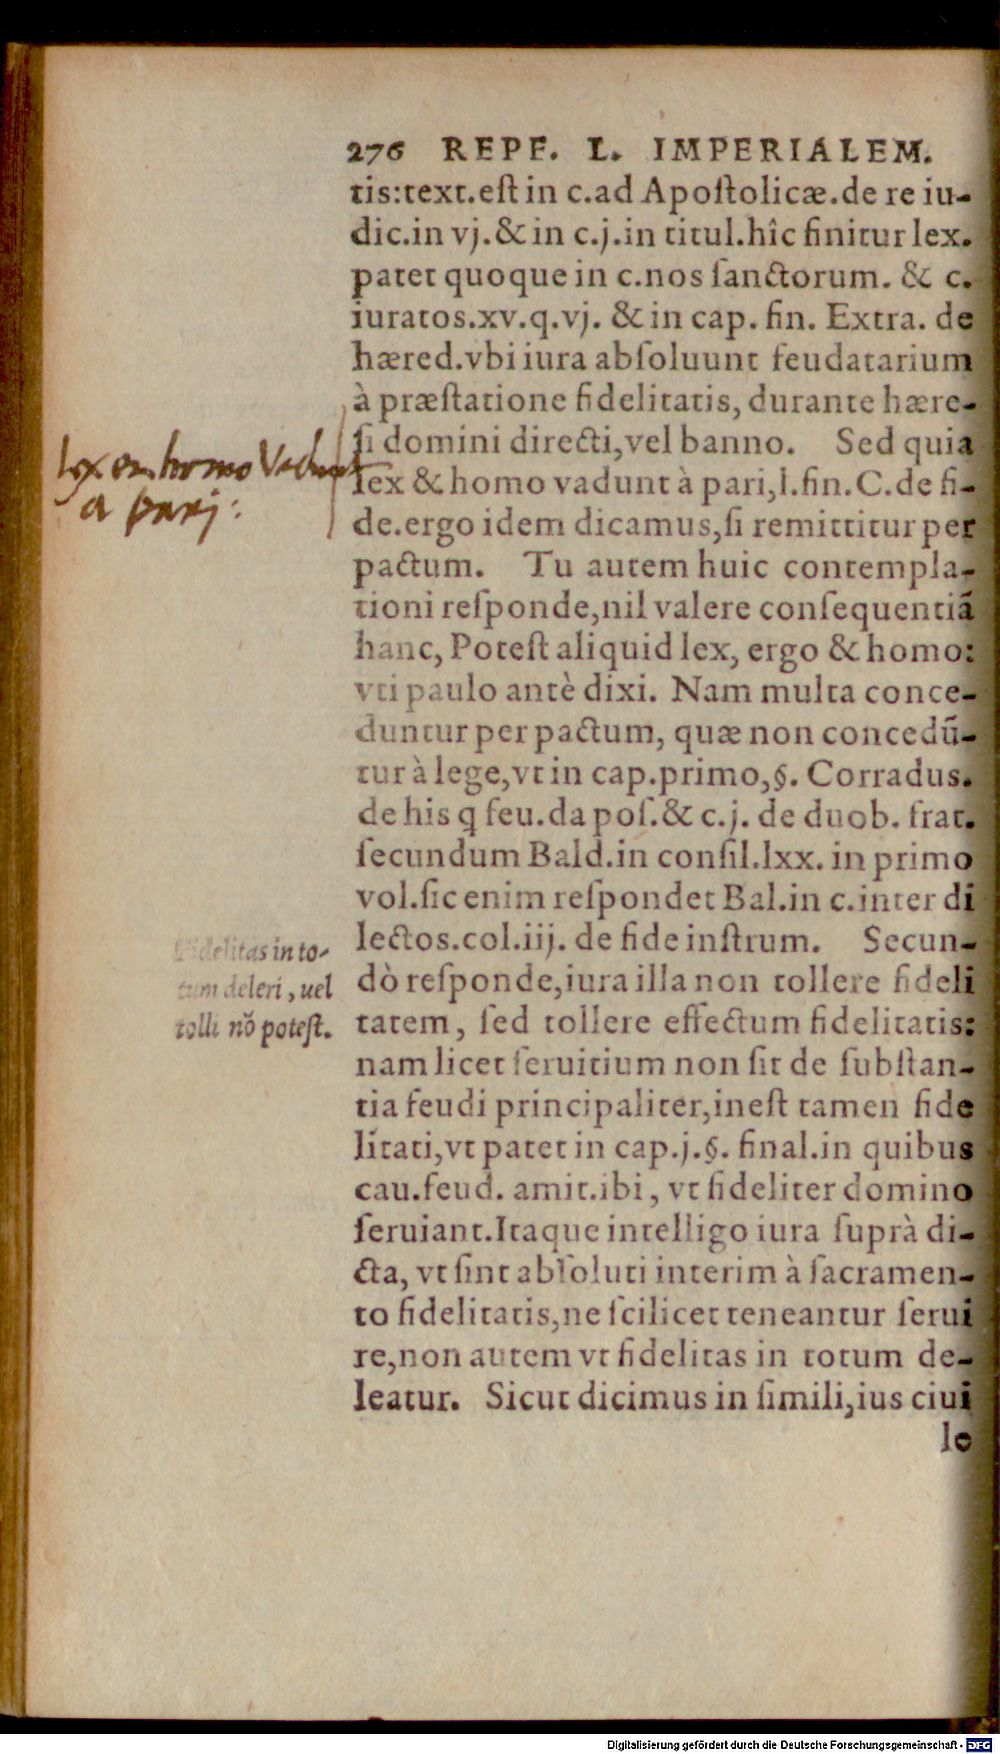 276 REPE. L. IMPERIALEM.
tis:text.eſt in c.ad Apoſtolicæ.de re iu-
dic.in vj.& in c.j.in titul.hîc finitur lex.
patet quoque in c.nos ſanctorum. & c.
iuratos.xv.q.vj. & in cap. fin. Extra. de
hæred.vbi iura abſoluunt feudatarium
à præſtatione fidelitatis, durante hære-
ſi domini directi,vel banno. Sed quia
lex & homo vadunt à pari,l.fin.C.de fi-
de.ergo idem dicamus,ſi remittitur per
pactum. Tu autem huic contempla-
tioni reſponde,nil valere conſequentiā
hanc, Poteſt aliquid lex, ergo & homo:
vti paulo antè dixi. Nam multa conce-
duntur per pactum, quæ non concedū-
tur à lege,vt in cap.primo,§. Corradus.
de his q feu.da poſ.& c.j. de duob. frat.
ſecundum Bald.in conſil.lxx. in primo
vol.ſic enim reſpondet Bal.in c.inter di
lectos.col.iij. de fide inſtrum. Secun-
dò reſponde,iura illa non tollere fideli
tatem, ſed tollere effectum fidelitatis:
nam licet ſeruitium non ſit de ſubſtan-
tia feudi principaliter,ineſt tamen fide
litati,vt patet in cap.j.§. final.in quibus
cau.feud. amit.ibi, vt fideliter domino
ſeruiant.Itaque intelligo iura ſuprà di-
cta, vt ſint abſoluti interim à ſacramen-
to fidelitatis,ne ſcilicet teneantur ſerui
re,non autem vt fidelitas in totum de-
leatur. Sicut dicimus in ſimili,ius ciui
le
homo Vadunt
a parj:
Fidelitas in to-
tum deleri, uel
tolli nō poteſt.
Digitalisierung gefördert durch die Deutsche Forschungsgemeinschaft - DFG